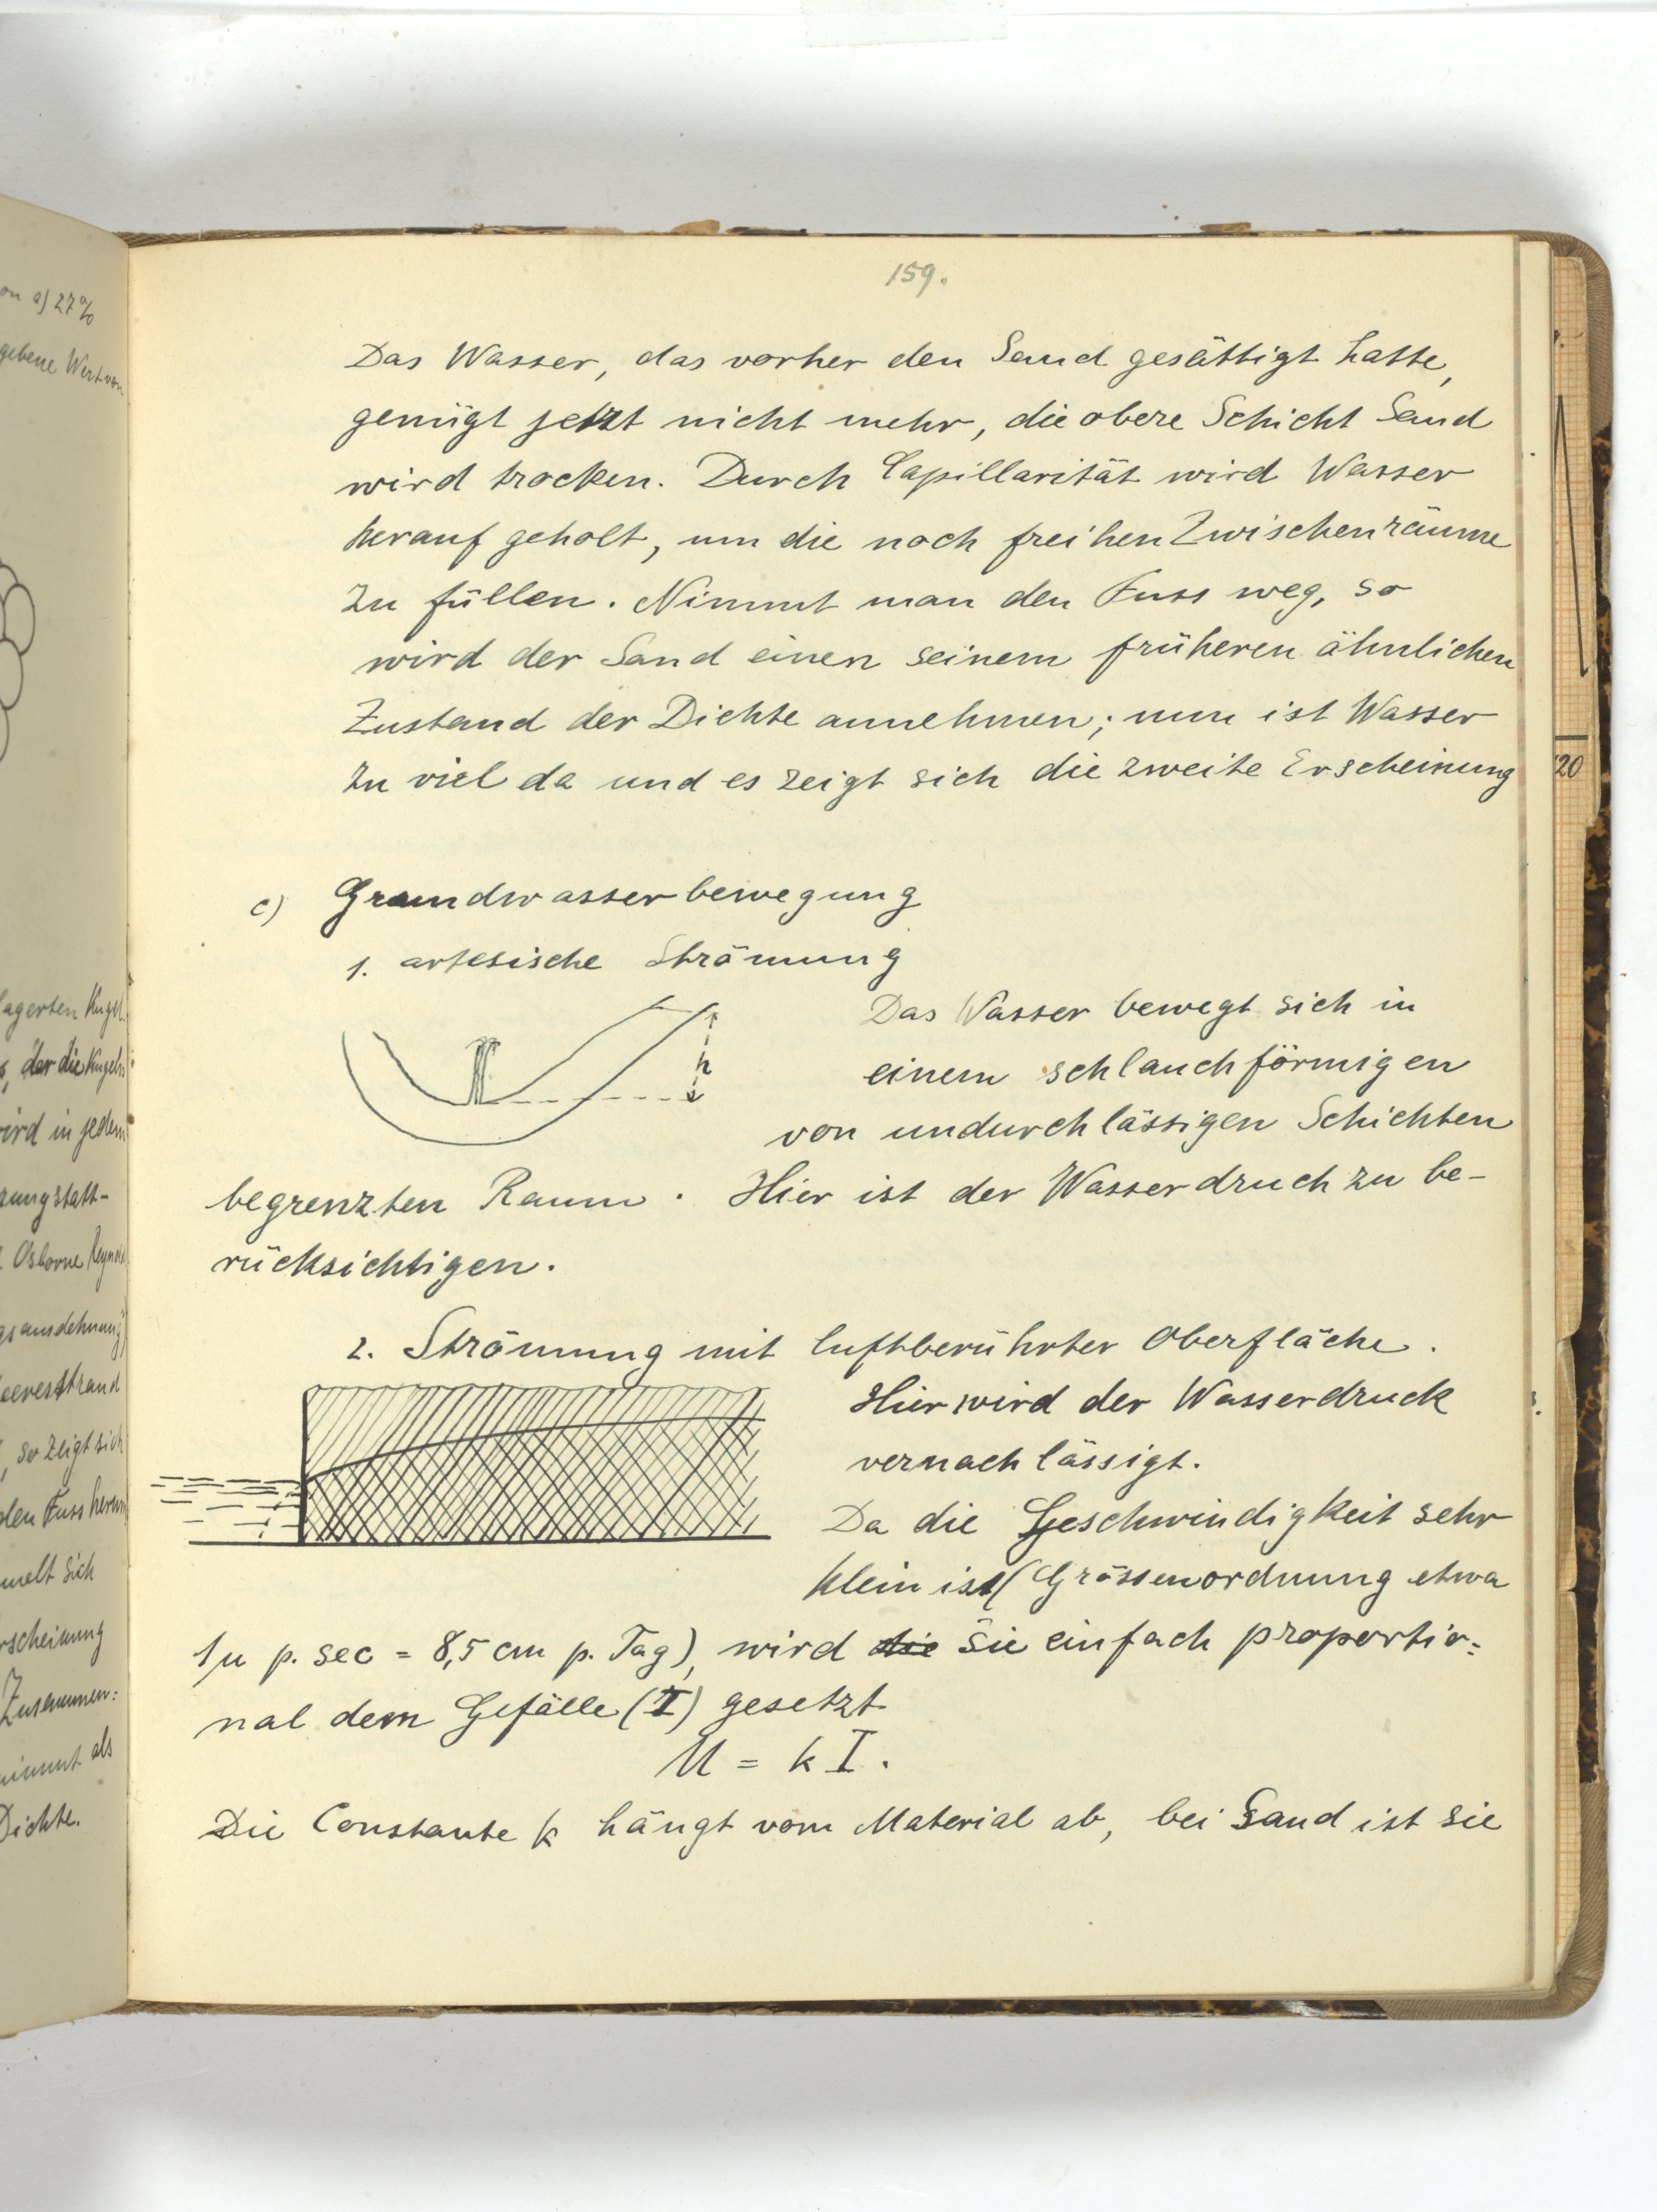 159.
Das Wasser, das vorher den Sand gesättigt hatte,
genügt jetzt nicht mehr, die obere Schicht Sand
wird trocken. Durch Capillarität wird Wasser
herauf geholt, um die noch freihen Zwischenräume
zu füllen. Nimmt man den Fuss weg, so
wird der Sand einen seinem früheren ähnlichen
Zustand der Dichte annehmen; nun ist Wasser
zu viel da und es zeigt sich die zweite Erscheinung
c) Grundwasserbewegung
1. artesische Strömung
h
Das Wasser bewegt sich in
einem schlauchförmigen
von undurchlässigen Schichten
begrenzten Raum. Hier ist der Wasserdruck zu be-
rücksichtigen.
2. Strömung mit luftberührter Oberfläche.
Hier wird der Wasserdruck
vernachlässigt.
Da die Geschwindigkeit sehr
klein ist (Grössenordnung etwa
1μ p. sec = 8,5 cm p. Tag), wird die sie einfach proportio=
nal dem Gefälle (I) gesetzt
U = k I.
Die Constante k hängt vom Material ab, bei Sand ist sie
on a) 27%
gebene Wert von
lagerten Kugel
der die Kugeln
wird in jedem
Osborne
gsausdehnung)
eeresstrand
so zeigt sich
den Fuss herum
melt sich
rscheinung
Zusammen=
nimmt als
Dichte.
20